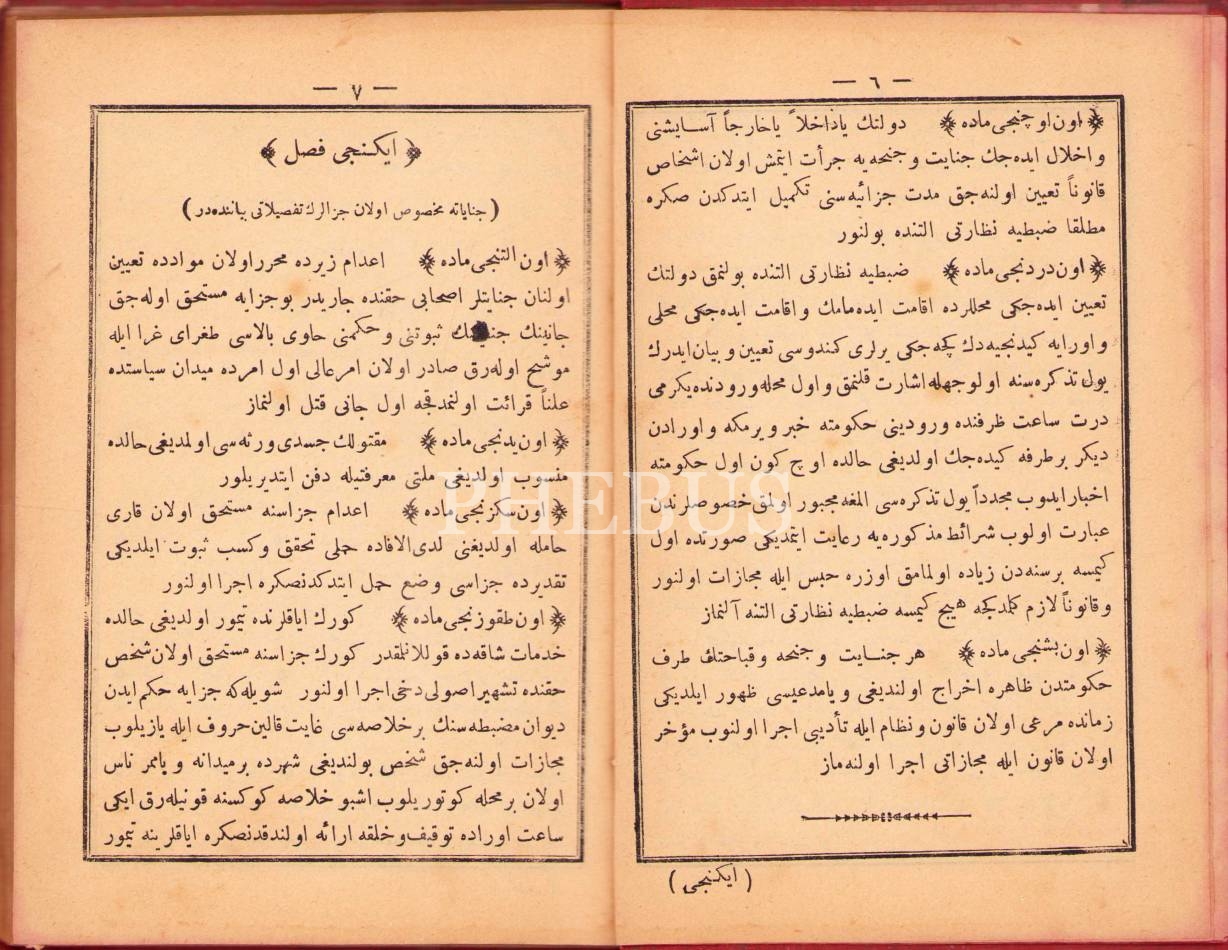 — ٦ —
﴿ اون اوچنجی ماده ﴾ دولتك یاداخلاً یاخارجاً آسایشنی
واخلال ایده‌جك جنایت و جنحه‌یه جرأت ایتمش اولان اشخاص
قانوناً تعیین اولنه‌جق مدت جزائیه‌سنی تکمیل ایتدکدن صکره
مطلقا ضبطیه نظارتی التنده بولنور
﴿ اون دردنجی ماده ﴾ ضبطیه نظارتی التنده بولنمق دولتك
تعیین ایده‌جکی محللرده اقامت ایده‌مامك و اقامت ایده‌جکی محلی
و اورایه کیدنجیه‌دك کچه‌جکی یرلری کندوسی تعیین و بیان ایدرك
یول تذکره‌سنه اولوجهله اشارت قلنمق و اول محله ورودنده یکرمی
درت ساعت ظرفنده ورودینی حکومته خبر ویرمکه و اورادن
دیکر بر طرفه کیده‌جك اولدیغی حالده اوچ کون اول حکومته
اخبار ایدوب مجدداً یول تذکره‌سی المغه مجبور اولمق خصوصلرندن
عبارت اولوب شرائط مذکوره‌یه رعایت ایتمدیکی صورتده اول
کیمسه برسنه‌دن زیاده اولمامق اوزره حبس ایله مجازات اولنور
وقانوناً لازم کلمدکجه هیچ کیمسه ضبطیه نظارتی التنه آلنماز
﴿ اون بشنجی ماده ﴾ هر جنایت و جنحه و قباحتك طرف
حکومتدن ظاهره اخراج اولندیغی و یامدعیسی ظهور ایلدیکی
زمانده مرعی اولان قانون و نظام ایله تأدیبی اجرا اولنوب مؤخر
اولان قانون ایله مجازاتی اجرا اولنه‌ماز
( ایکنجی )
— ٧ —
﴿ ایکنجی فصل ﴾
( جنایاته مخصوص اولان جزالرك تفصیلاتی بیاننده‌در )
﴿ اون التنجی ماده ﴾ اعدام زیرده محرر اولان موادده تعیین
اولنان جنایتلر اصحابی حقنده جاریدر بو جزایه مستحق اوله‌جق
جانینك ثبوتنی و حکمنی حاوی بالاسی طغرای غرا ایله
موشح اوله‌رق صادر اولان امر عالی اول امرده میدان سیاستده
علناً قرائت اولنمدقجه اول جانی قتل اولنماز
﴿ اون یدنجی ماده ﴾ مقتولك جسدی ورثه‌سی اولمدیغی حالده
منسوب اولدیغی ملتی معرفتیله دفن ایتدیریلور
﴿ اون سکزنجی ماده ﴾ اعدام جزاسنه مستحق اولان قاری
حامله اولدیغنی لدی‌الافاده حملی تحقق وکسب ثبوت ایلدیکی
تقدیرده جزاسی وضع حمل ایتدکدنصکره اجرا اولنور
﴿ اون طقوزنجی ماده ﴾ کورك ایاقلرنده تیمور اولدیغی حالده
خدمات شاقه‌ده قوللانلمقدر کورك جزاسنه مستحق اولان شخص
حقنده تشهیر اصولی دخی اجرا اولنور شویله‌که جزایه حکم ایدن
دیوان مضبطه‌سنك بر خلاصه‌سی غایت قالین حروف ایله یازیلوب
مجازات اولنه‌جق شخص بولندیغی شهرده بر میدانه و یاممر ناس
اولان بر محله کوتوریلوب اشبو خلاصه کوکسنه قونیله‌رق ایکی
ساعت اوراده توقیف و خلقه ارائه اولندقدنصکره ایاقلرینه تیمور
PHEBUS